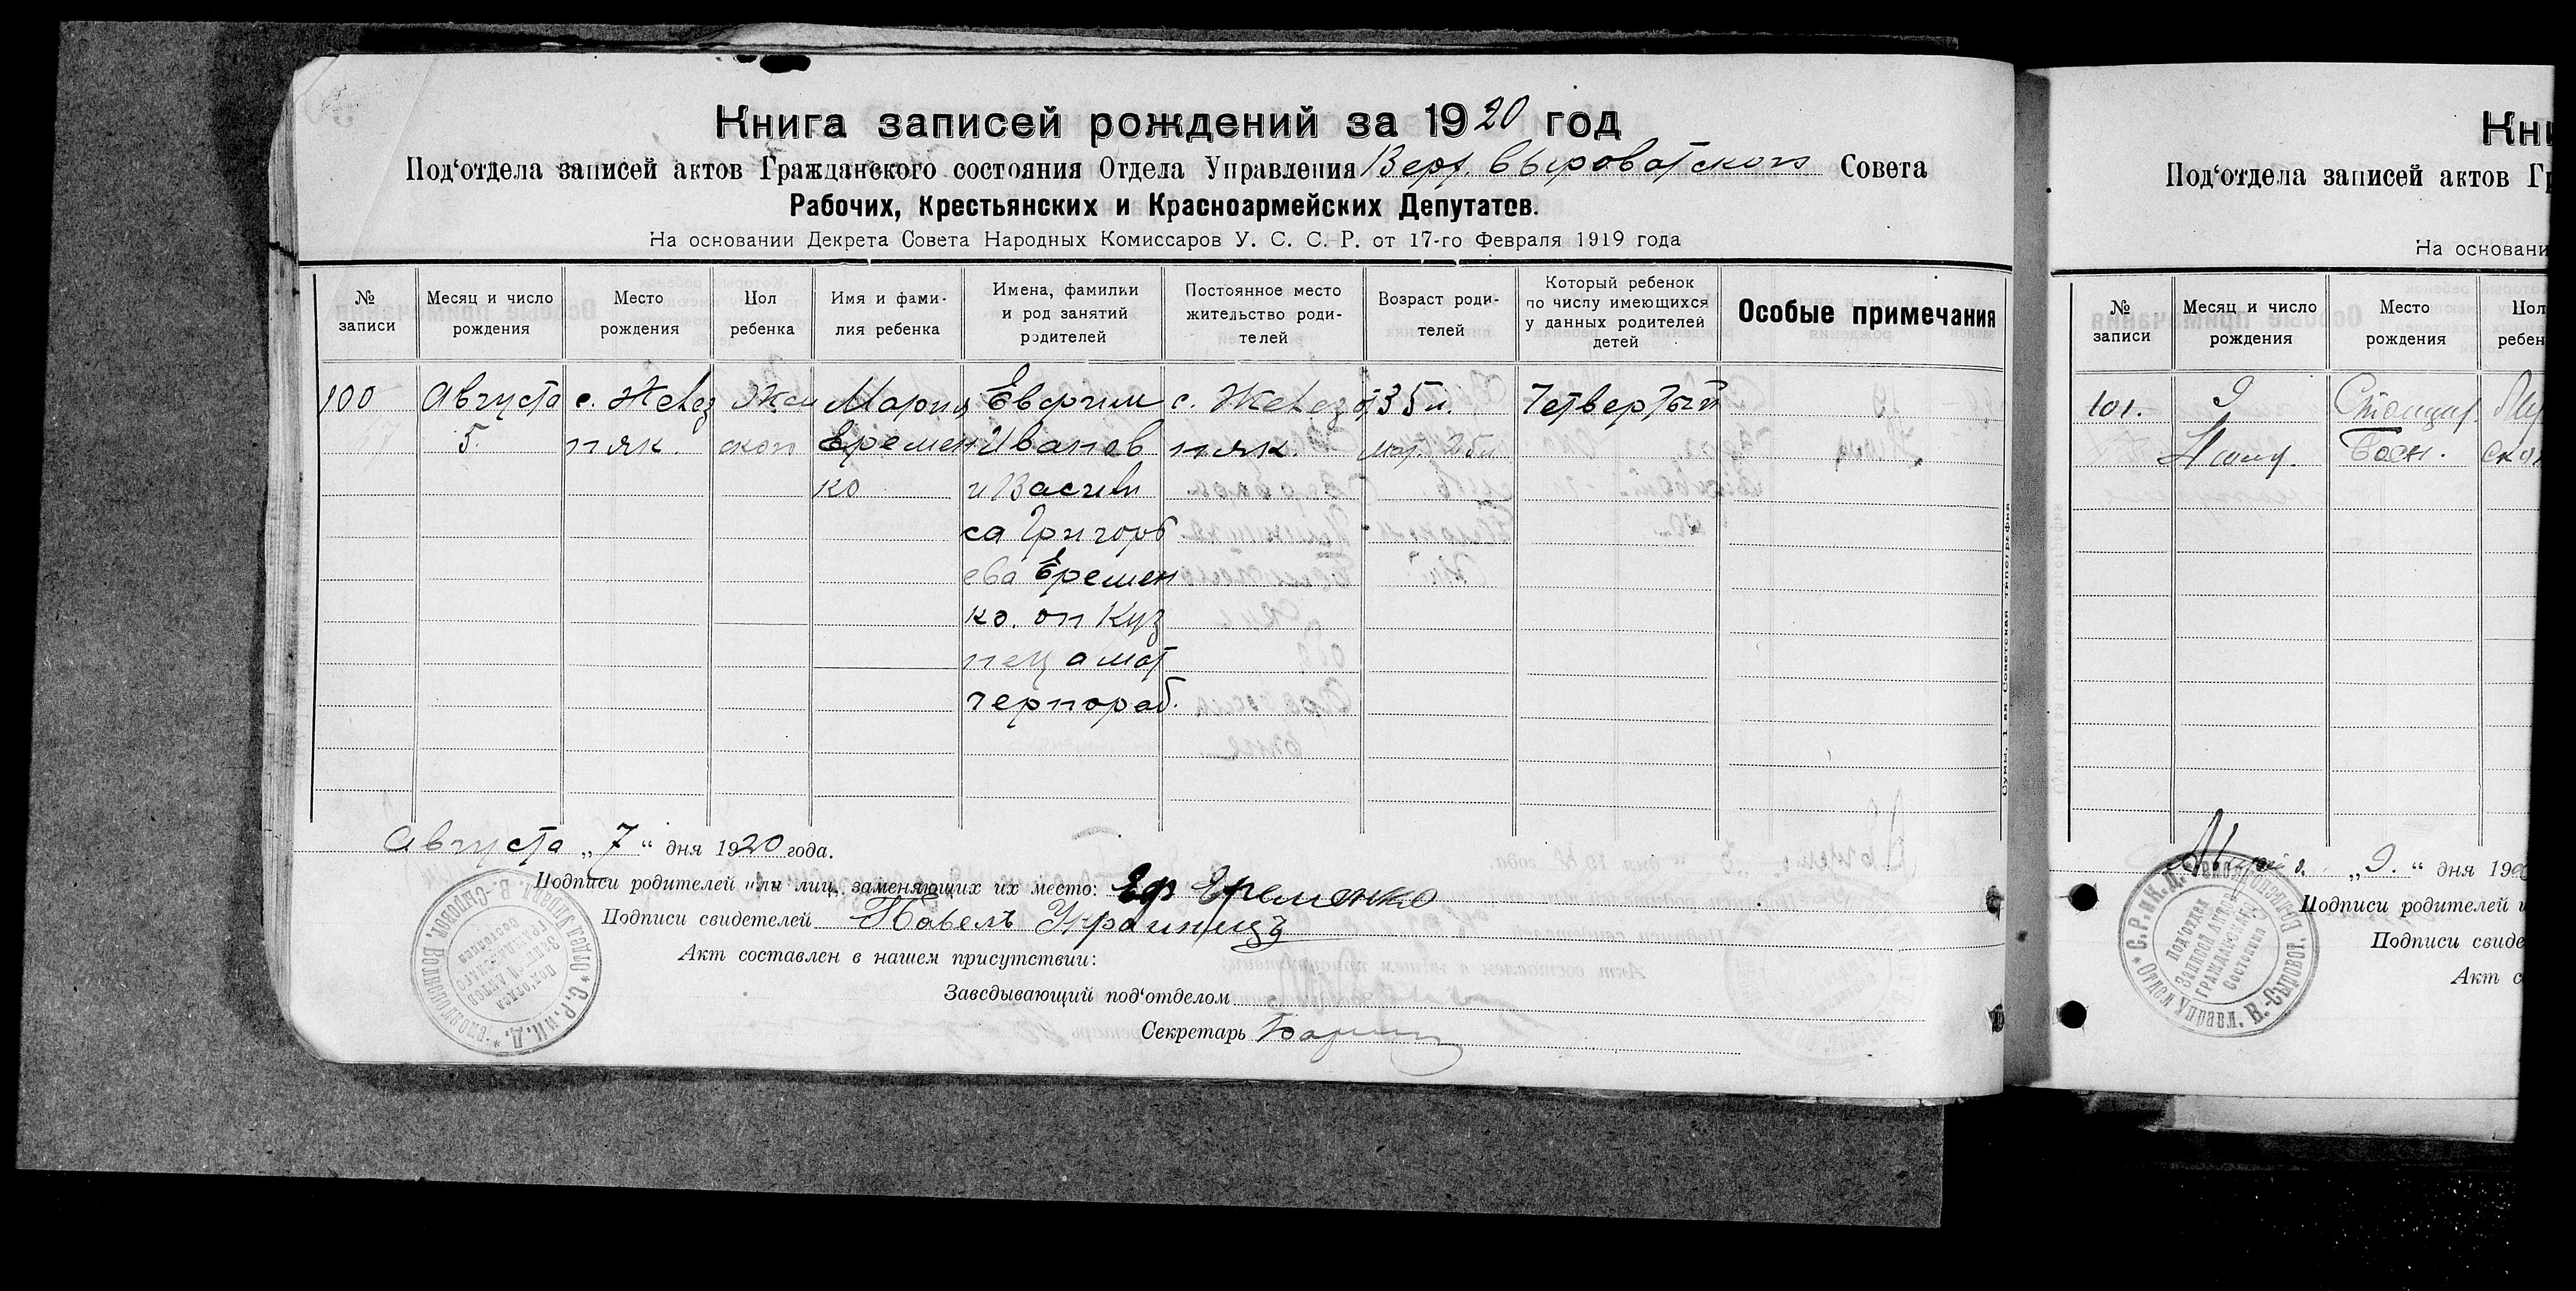 Книга записей рождений за 1920 год
Под'отдела записей актов Гражданского состояния Отдела Управления Верх. Сыроватского Совета
Рабочих, Крестьянских и Красноармейских Депутатов.
На основании Декрета Совета Народных Комиссаров У. С. С. Р. от 17-го Февраля 1919 года
№ записи
Месяц и число рождения
Место рождения
Пол ребенка
Имя и фами-
лия ребенка
Имена, фамилии
и род занятий
родителей
Постоянное место
жительство роди-
телей
Возраст роди-
телей
Который ребенок
по числу имеющихся
у данных родителей
детей
Особые примечания
100 Августа с. Желез Жен Мария Евфим с. Желез 35 л. Четвертый
5. няк. ског Еремен Иванов няк. мат. 26 л
ко и Васили
са Григорь
ева Еремен
ко. он Куз
нец а мат
чернораб.
Августа „7“ дня 1920 года.
Подписи родителей или лиц, заменяющих их место: Еф Еременко
Подписи свидетелей Павелъ Украинецъ
Акт составлен в нашем присутствии:
Заведывающий под'отделом
Секретарь
Сумы, 1-ая Советская типография
Кни
Под'отдела записей актов Гр
На основани
№ записи
Месяц и число рождения
Место рождения
Пол
ребен
101. 9 Станция
Басы.
„9.“ дня 19
Подписи родителей и
Подписи свиде
Акт с
* С. Р. и К. Д. * Отдел Управл. В.-Сыроват. Волисполкома
Под'отдел
Записей Актов
Гражданского
Состояния